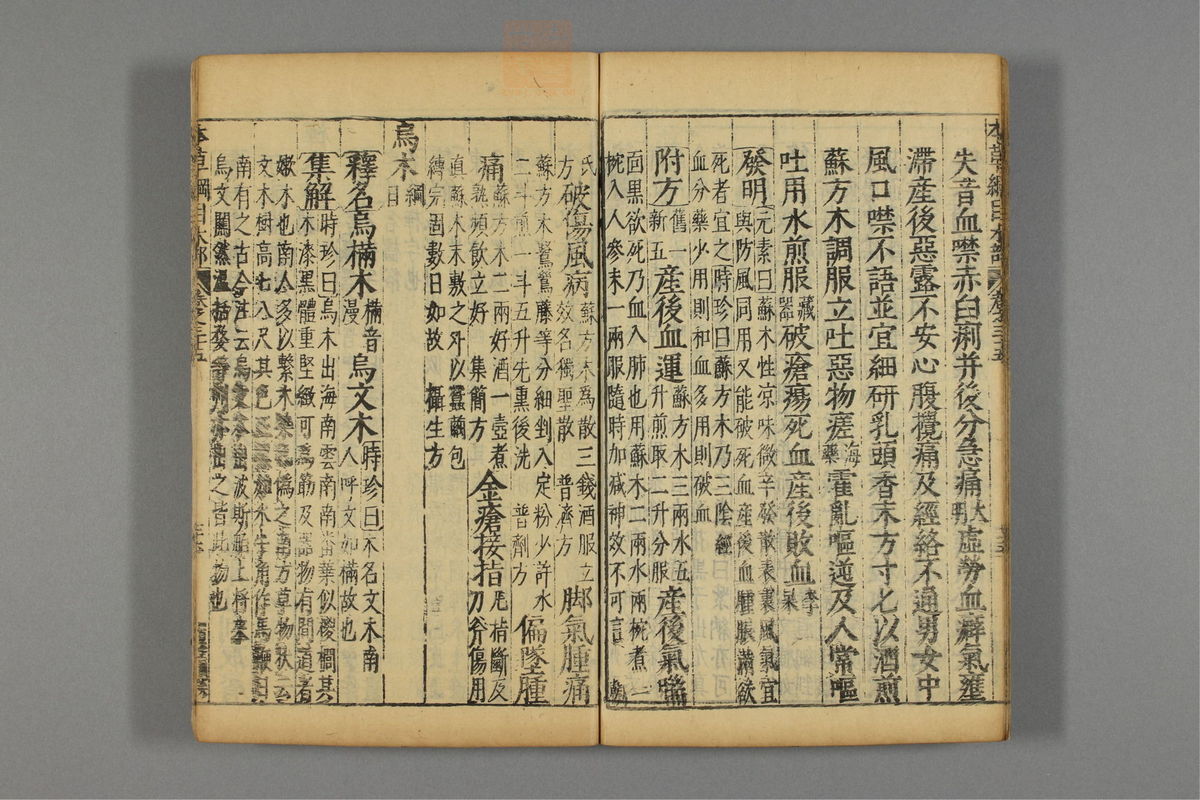 失音血噤赤白痢并後分急痛大明虛勞血癖氣壅
滯產後惡露不安心腹攪痛及經絡不通男女中
風口噤不語並宜細研乳頭香末方寸匕以酒煎
蘇方木調服立吐惡物瘥海藥霍亂嘔逆及人常嘔
吐用水煎服藏器破瘡瘍死血產後敗血李杲
發明元素曰蘇木性涼味微辛發散表裏風氣宜與防風同用又能破死血產後血腫脹滿欲
死者宜之時珍曰蘇方木乃三陰經血分藥少用則和血多用則破血
附方舊一新五產後血運蘇方木三兩水五升煎取二升分服產後氣喘
面黑欲死乃血入肺也用蘇木二兩水兩椀煮一椀入人參末一兩服隨時加減神效不可言胡
氏方破傷風病蘇方木為散三錢酒服立效名獨聖散普濟方腳氣腫痛
蘇方木鷺鷥藤等分細剉入定粉少許水二斗煎一斗五升先熏後洗普劑方偏墜腫
痛蘇方木二兩好酒一壺煮熟頻飲立好集簡方金瘡接指凡指斷及刀斧傷用
真蘇木末敷之外以蠶繭包縛完固數日如故攝生方
烏木綱目
釋名烏樠木樠音漫烏文木時珍曰木名文木南人呼文如樠故也
集解時珍曰烏木出海南雲南南番葉似椶櫚其木漆黑體重堅緻可為筯及器物有間道者
嫩木也南人多以繫木染色偽之南方草物狀云文木樹高七八尺其色正黑如水牛角作馬鞭日
南有之古今注云烏文木出波斯舶上將來烏文闌然溫括婺等州亦出之皆此物也
本草綱目木部
卷之三十五